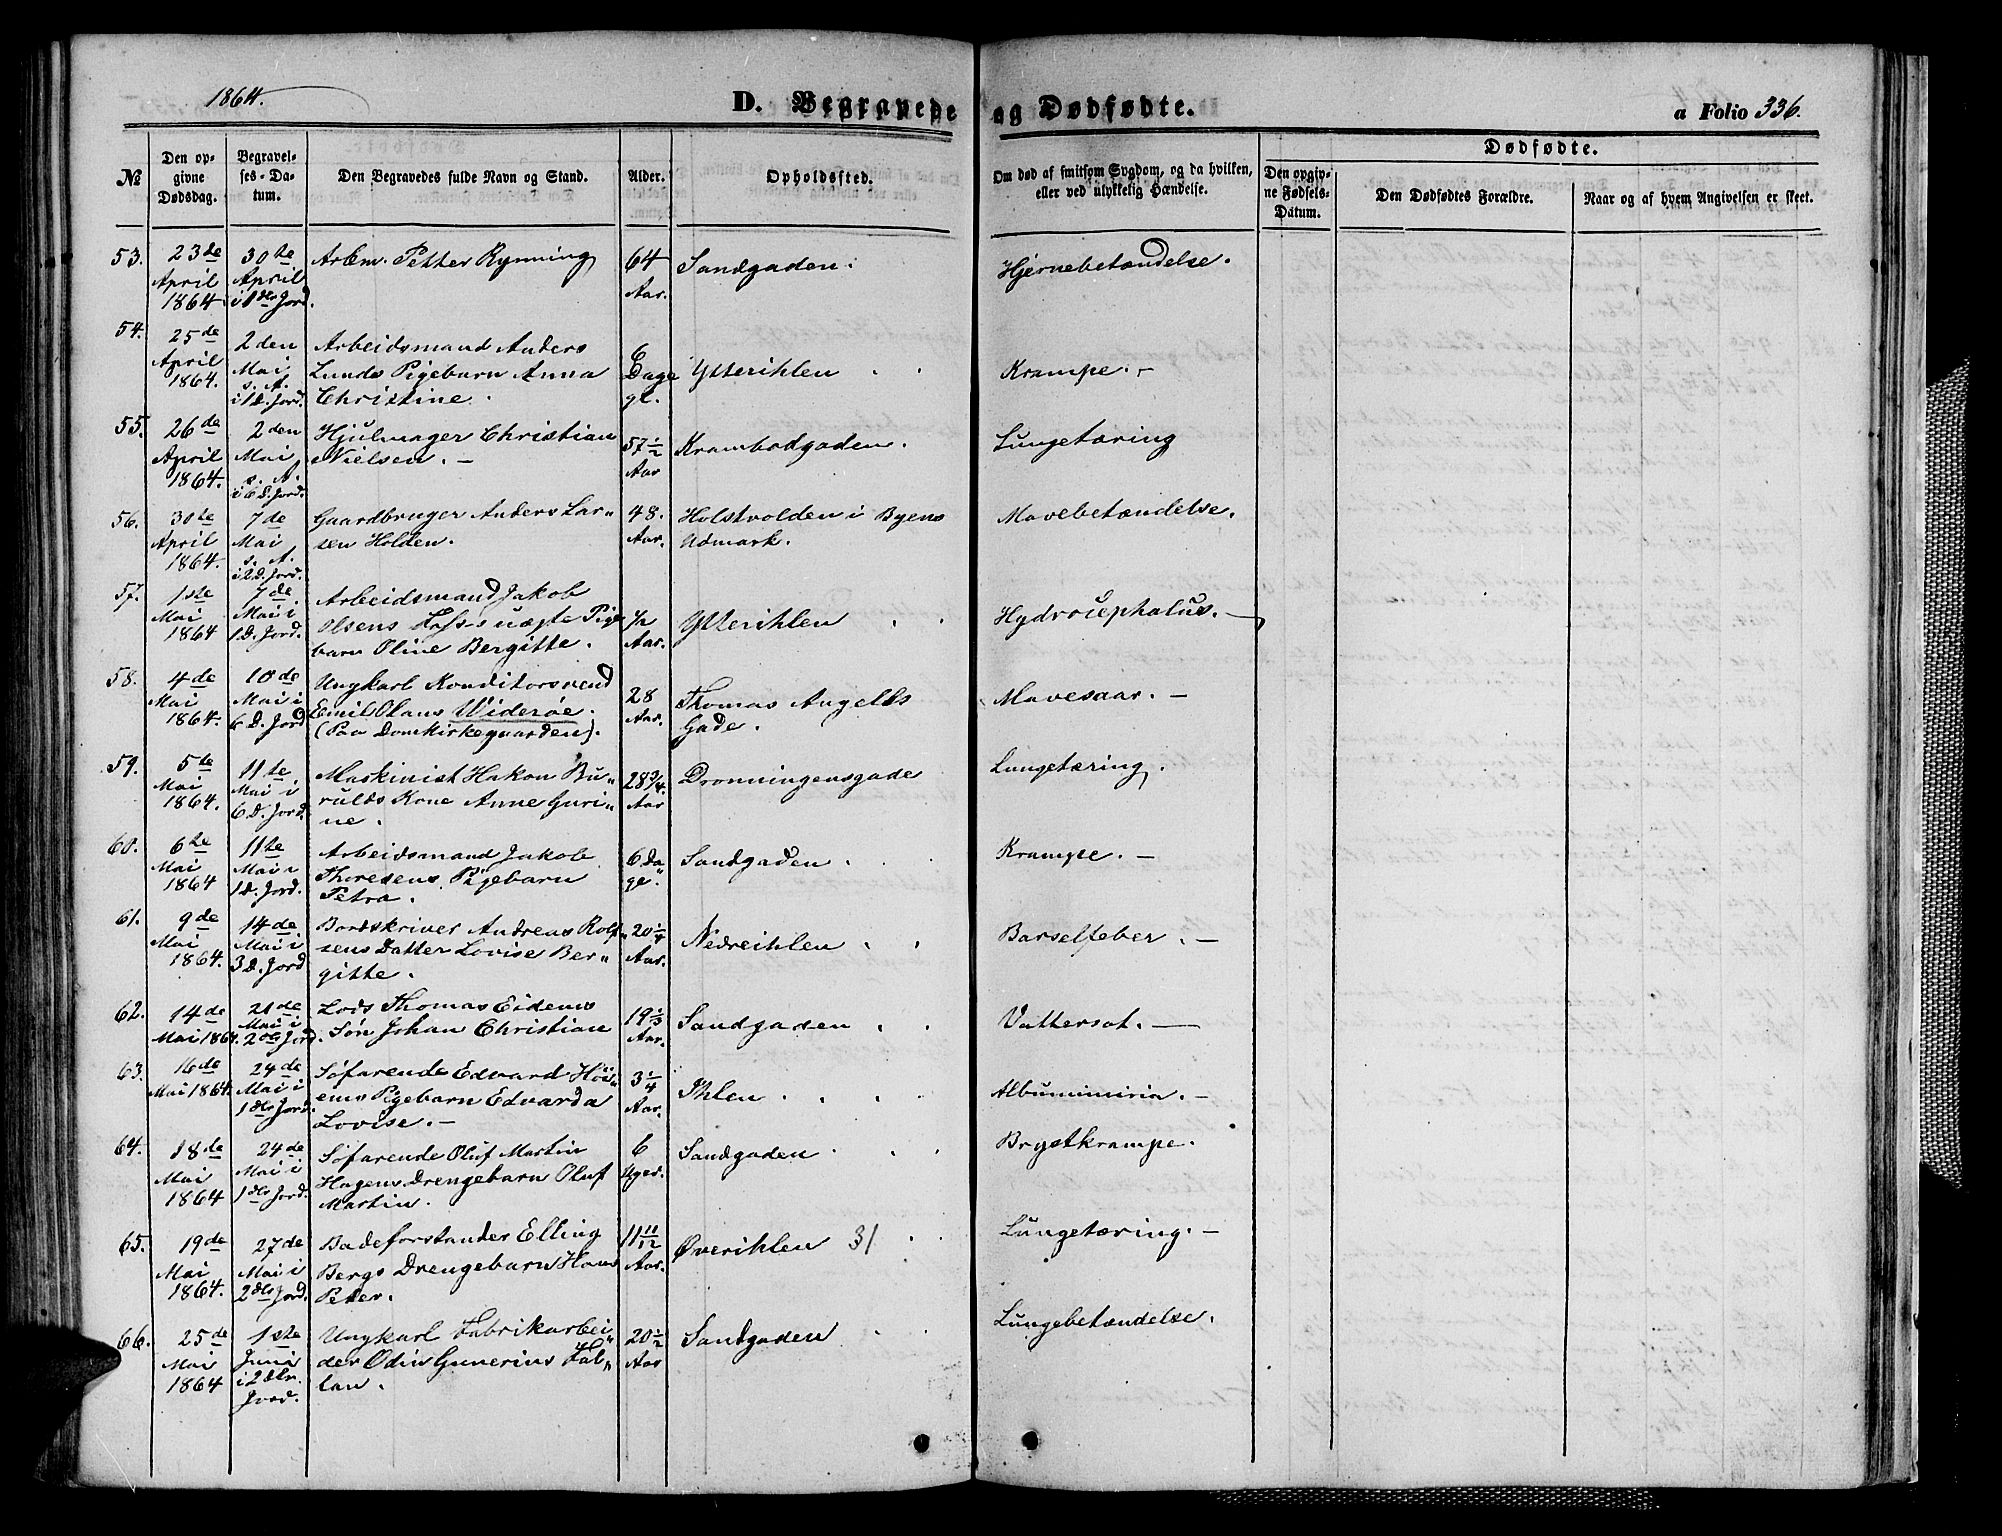 1864.
D. Begravede og Dødfødte.
a Folio 336.
Dødfødte.
№
Den opgivne Dødsdag.
Begravelses-Datum.
Den Begravedes fulde Navn og Stand.
Alder.
Opholdssted.
Om død af smitsom Sygdom, og da hvilken, eller ved ulykkelig Hændelse.
Den opgivne Fødsels-Datum.
Den Dødfødtes Forældre.
Naar og af hvem Angivelsen er skeet.
53. 23de 30te Arbm. Petter Rynning 64 Sandgaden. Hjernebetændelse.
April April Aar.
1864 i 1ste Jord.
54. 25de 2den Arbeidsmand Anders 6 Ytterihlen Krampe.
April Mai Lunds Pigebarn Anna Dage
1864. s. A. Christine. gl.
i 1 D. Jord.
55. 26de 2den Hjulmager Christian 57½ Krambodgaden. Lungetæring
April Mai Nielsen. Aar
1864. s. A.
i 6 D. Jord.
56. 30te 7de Gaardbruger Anders Lar= 48. Holstvolden i Byens Mavebetændelse.
April Mai sen Holden. Aar. Udmark.
1864. s. A.
i 2 D. Jord.
57. 1ste 7de Arbeidsmand Jakob ½ Ytterihlen Hydrocephalus.
Mai Mai i Olsens uægte Pige Aar.
1864 1 D. Jord. barn Oline Bergitte.
58. 4de 10de Ungkarl Konditorsvend 28 Thomas Angells Mavesaar.
Mai Mai i Emil Olaus Widerøe. Aar. Gade.
1864. 6 D. Jord (Paa Domkirkegaarden).
59. 5te 11te Maskinist Hakon Bu= 28¾ Dronningensgade Lungetæring.
Mai Mai i rulds Kone Anne Guri= Aar
1864. 6 D. Jord. ne.
60. 6te 11te Arbeidsmand Jakob 6 Da= Sandgaden Krampe.
Mai Mai i Thoresens Pigebarn ge.
1864 1 D. Jord. Petra.
61. 9de 14de Bordskriver Andreas Rolf= 20¼ Nedreihlen Barselfeber.
Mai Mai i sens Datter Lovise Ber= Aar.
1864. 3 D. Jord gitte.
62. 14de 21de Lods Thomas Eidems 19⅓ Sandgaden Vattersot.
Mai 1864. Mai i Søn Johan Christian Aar.
2den Jord.
63. 16de 24de Søfarende Edvard Høi= 3¼ Ihlen Albuminuria.
Mai 1864. Mai i ems Pigebarn Edvarda Aar.
1ste Jord. Lovise.
64. 18de 24de Søfarende Oluf Martin 6 Sandgaden Brystkrampe.
Mai Mai i Hagens Drengebarn Oluf Uger.
1864 1ste Jord. Martin.
65. 19de 27de Badeforstander Elling 11 11/12 Øverihlen 31 Lungetæring.
Mai Mai i Bergs Drengebarn Hans Aar.
1864. 2den Jord. Peter.
66. 25de 1ste Ungkarl Fabrikarbei= 20½ Sandgaden Lungebetændelse.
Mai Juni der Odin Gunerius Fab= Aar
1864 i 2den lan.
Jord.